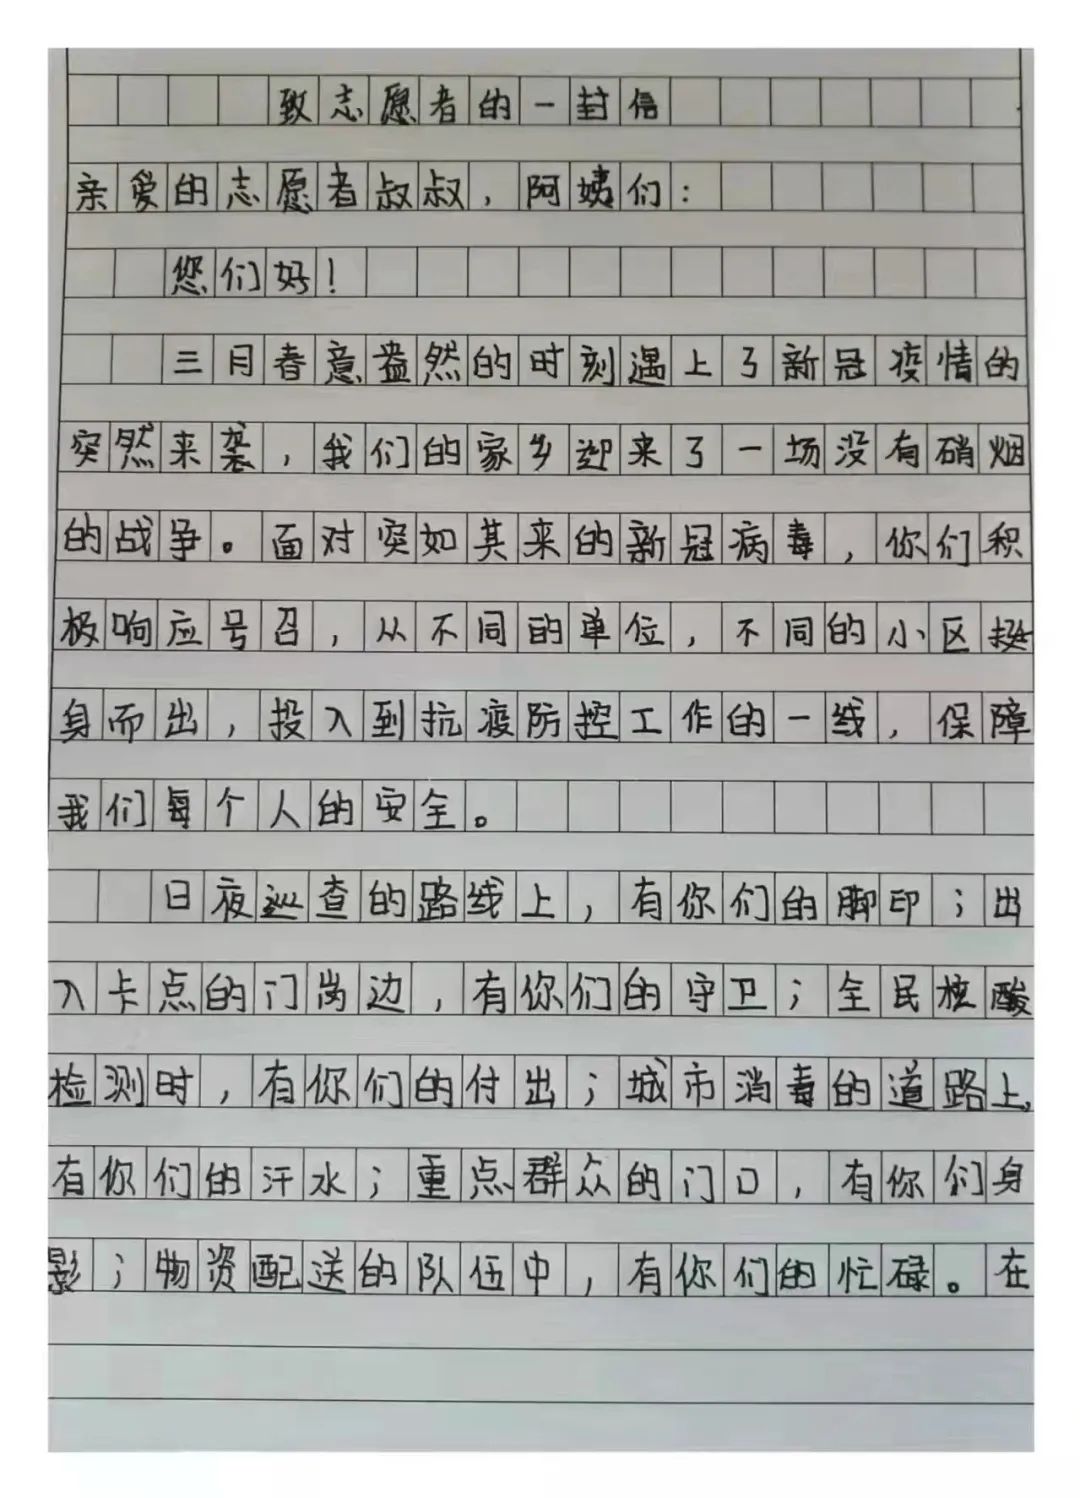 致志愿者的一封信
亲爱的志愿者叔叔，阿姨们：
您们好！
三月春意盎然的时刻遇上了新冠疫情的
突然来袭，我们的家乡迎来了一场没有硝烟
的战争。面对突如其来的新冠病毒，你们积
极响应号召，从不同的单位，不同的小区挺
身而出，投入到抗疫防控工作的一线，保障
我们每个人的安全。
日夜巡查的路线上，有你们的脚印；出
入卡点的门岗边，有你们的守卫；全民核酸
检测时，有你们的付出；城市消毒的道路上，
有你们的汗水；重点群众的门口，有你们身
影；物资配送的队伍中，有你们的忙碌。在